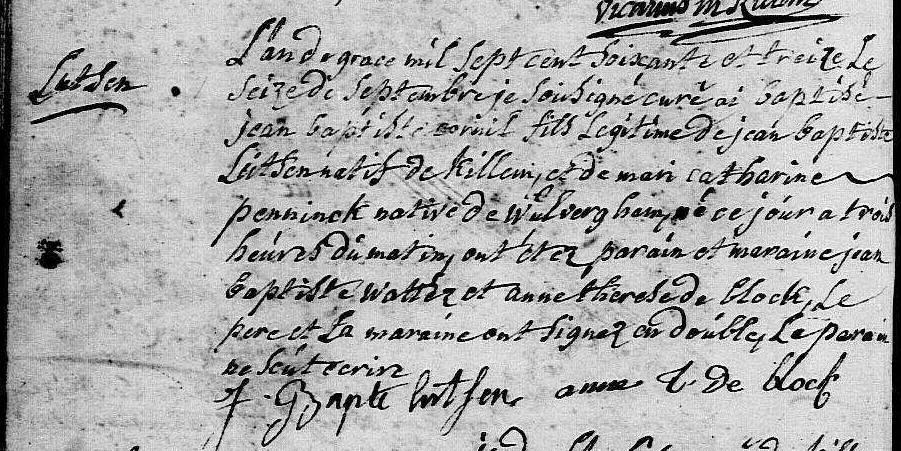 Vicarius in Killem
L'an de grace mil sept cent soixante et treize, Le
Lutsen
seize de septembre je sousigné curé ai baptisé
jean baptiste cornil fils Legitime de jean baptiste
Lutsen natif de Killem, et de mari catharine
penninck native de Wulverghem, né ce jour a trois
heures du matin, ont étez parain et maraine jean
baptiste Walter et anne therese de block, Le
pere et La maraine ont signez en double, Le parain
ne scut ecrire
J Bapte lutsen. anne t. de block